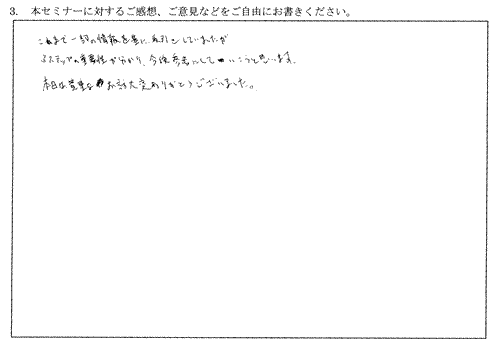 3. 本セミナーに対するご感想、ご意見などをご自由にお書きください。
これまで一部の情報を基に取引をしていましたが
3ステップの重要性が分かり、今後参考にしていこうと思います。
本日は貴重なお話大変ありがとうございました。